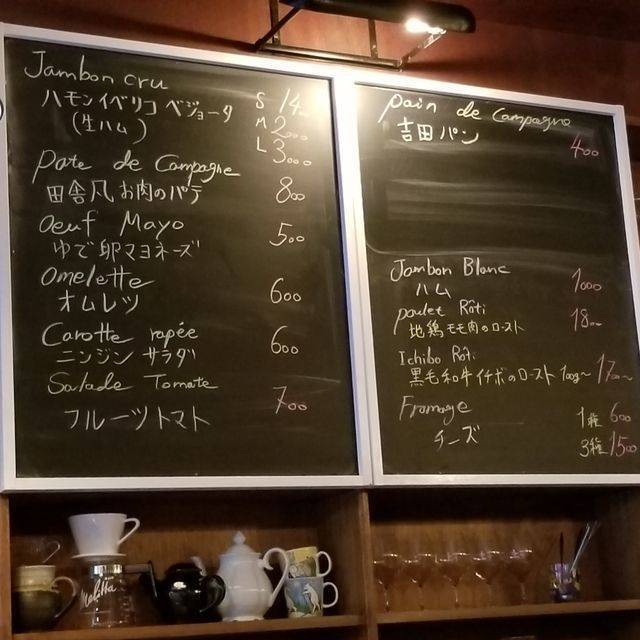 Jambon cru
ハモンイベリコ ベジョータ S 14
(生ハム) M 2000
L 3000
Pate de Campagne
田舎風お肉のパテ 800
Oeuf Mayo
ゆで卵マヨネーズ 500
Omelette
オムレツ 600
Carotte rapée
ニンジン サラダ 600
Salade Tomate
フルーツトマト 700
Pain de Campagne
吉田パン 400
Jambon Blanc
ハム 1000
Poulet Rôti
地鶏モモ肉のロースト 1800
Ichibo Rôti
黒毛和牛イチボのロースト 100g~ 1700~
Fromage
チーズ 1種 600
3種 1500
Melitta